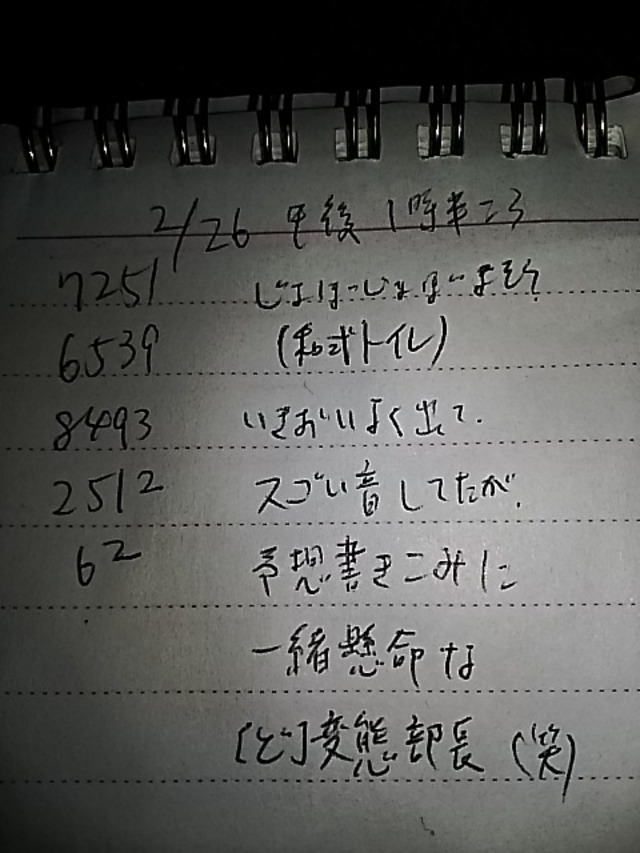 2/26 午後1時半ころ
7251 じょぼじょぼ
6539 (和式トイレ)
8493 いきおいよく出て、
2512 スゴい音してたが、
62 予想書きこみに
一緒懸命な
[ど]変態部長(笑)